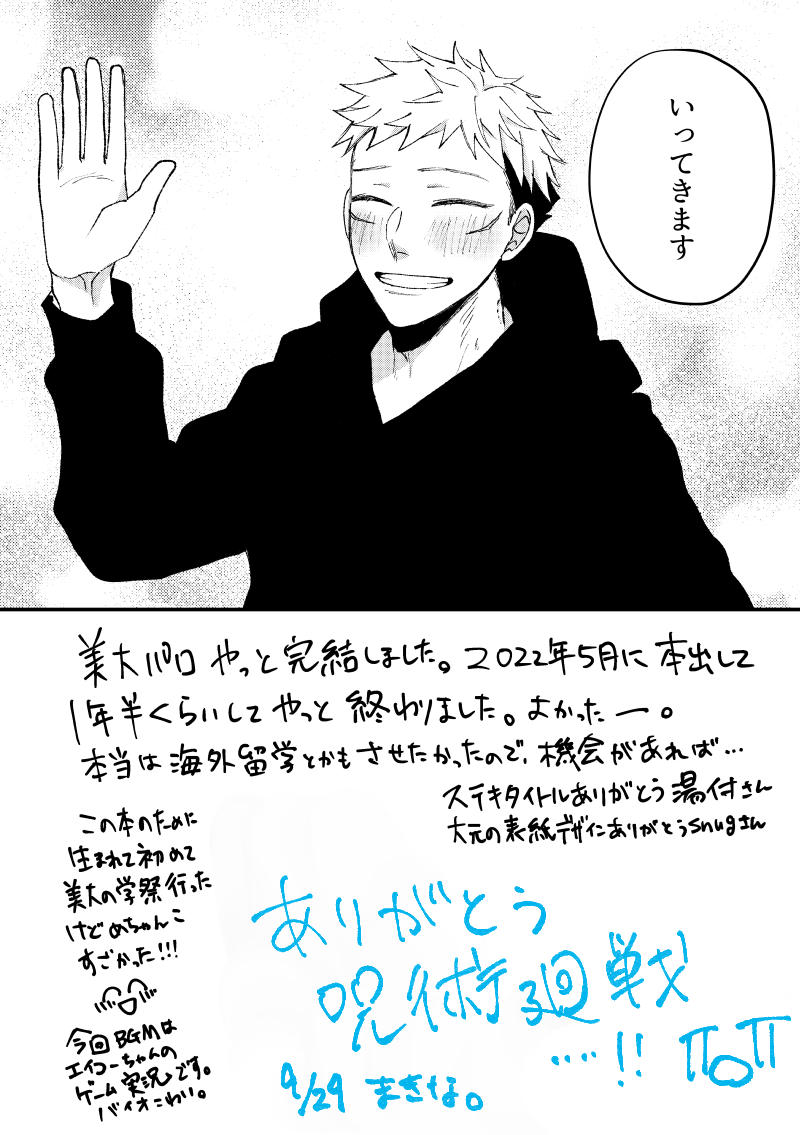 いってきます
美大パロやっと完結しました。2022年5月に本出して
1年半くらいしてやっと終わりました。よかったー。
本当は海外留学とかもさせたかったので、機会があれば…
ステキタイトルありがとう湯付さん
大元の表紙デザインありがとうsnugさん
この本のために
生まれて初めて
美大の学祭行った
けどめちゃんこ
すごかった!!!
今回BGMは
エイコーちゃんの
ゲーム実況です。
バイオこわい。
ありがとう
呪術廻戦
….!!
9/29 まきな。